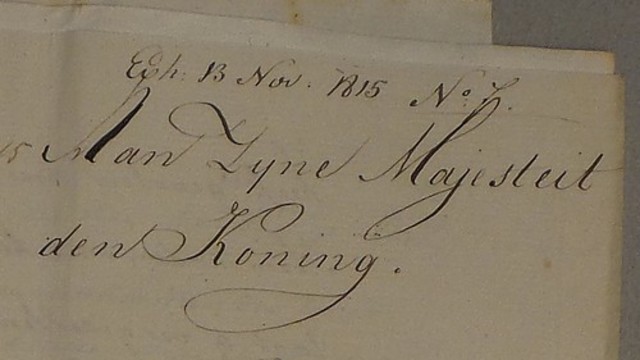 Exh: 13 Nov. 1815 No 7.
15 Aan Zyne Majesteit
den Koning.